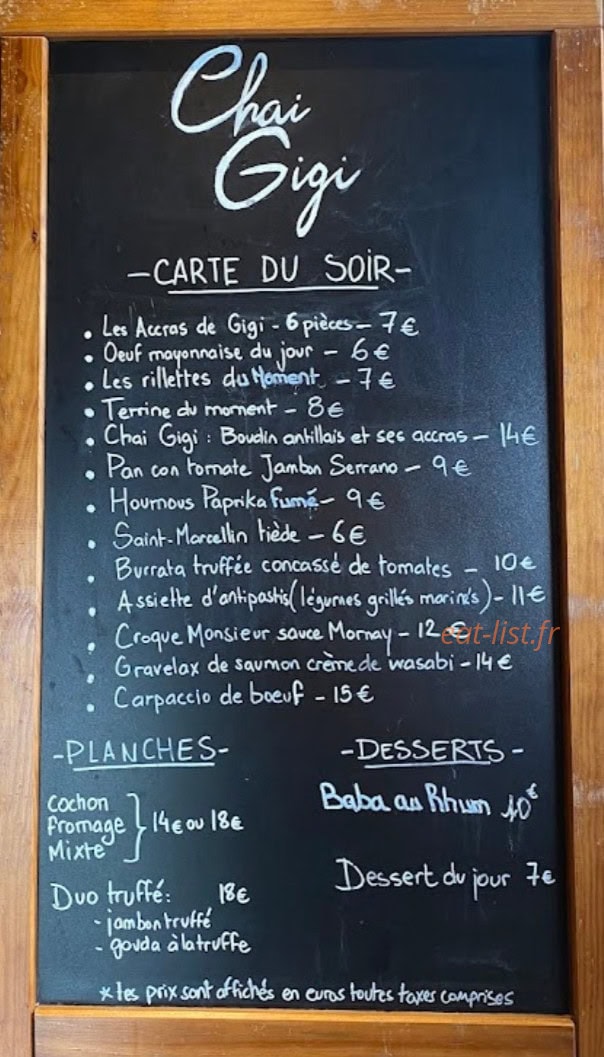 Chai
Gigi
- CARTE DU SOIR -
• Les Accras de Gigi - 6 pièces - 7€
• Oeuf mayonnaise du jour - 6€
• Les rillettes du Moment - 7€
• Terrine du moment - 8€
• Chai Gigi : Boudin antillais et ses accras - 14€
• Pan con tomate Jambon Serrano - 9€
• Houmous Paprika fumé - 9€
• Saint-Marcellin tiède - 6€
• Burrata truffée concassé de tomates - 10€
• Assiette d'antipastis (légumes grillés marinés) - 11€
• Croque Monsieur sauce Mornay - 12€
eat-list.fr
• Gravelax de saumon crème de wasabi - 14€
• Carpaccio de boeuf - 15€
- PLANCHES -
Cochon
Fromage } 14€ ou 18€
Mixte
Duo truffé : 18€
- jambon truffé
- gouda à la truffe
- DESSERTS -
Baba au Rhum 10€
Dessert du jour 7€
* les prix sont affichés en euros toutes taxes comprises